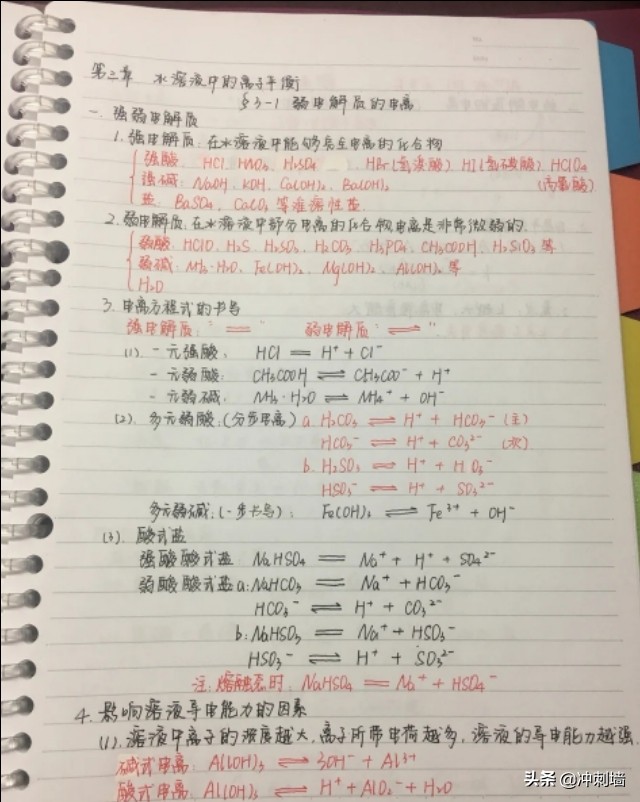 第三章 水溶液中的离子平衡
§3-1 弱电解质的电离
一. 强弱电解质
1. 强电解质: 在水溶液中能够完全电离的化合物
强酸: HCl HNO₃ H₂SO₄ HBr(氢溴酸) HI(氢碘酸) HClO₄
强碱: NaOH、KOH、Ca(OH)₂、Ba(OH)₂ (高氯酸)
盐: BaSO₄、CaCO₃ 等难溶性盐
2. 弱电解质: 在水溶液中部分电离的化合物电离是非常微弱的.
弱酸: HClO、H₂S、H₂SO₃、H₂CO₃、H₃PO₄、CH₃COOH、H₂SiO₃ 等
弱碱: NH₃·H₂O、Fe(OH)₂、Mg(OH)₂、Al(OH)₃ 等
H₂O
3. 电离方程式的书写
强电解质: "══" 弱电解质: "⇌"
(1). 一元强酸: HCl ══ H⁺ + Cl⁻
一元弱酸: CH₃COOH ⇌ CH₃COO⁻ + H⁺
一元弱碱: NH₃·H₂O ⇌ NH₄⁺ + OH⁻
(2). 多元弱酸: (分步电离) a. H₂CO₃ ⇌ H⁺ + HCO₃⁻ (主)
HCO₃⁻ ⇌ H⁺ + CO₃²⁻ (次)
b. H₂SO₃ ⇌ H⁺ + H O₃⁻
HSO₃⁻ ⇌ H⁺ + SO₃²⁻
多元弱碱: (一步书写): Fe(OH)₃ ⇌ Fe³⁺ + OH⁻
(3). 酸式盐
强酸酸式盐: NaHSO₄ ══ Na⁺ + H⁺ + SO₄²⁻
弱酸酸式盐: a: NaHCO₃ ══ Na⁺ + HCO₃⁻
HCO₃⁻ ⇌ H⁺ + CO₃²⁻
b: NaHSO₃ ══ Na⁺ + HSO₃⁻
HSO₃⁻ ⇌ H⁺ + SO₃²⁻
注: 熔融态时: NaHSO₄ ══ Na⁺ + HSO₄⁻
4. 影响溶液导电能力的因素
(1). 溶液中离子的浓度越大, 离子所带电荷越多, 溶液的导电能力越强.
碱式电离: Al(OH)₃ ⇌ 3OH⁻ + Al³⁺
酸式电离: Al(OH)₃ ⇌ H⁺ + AlO₂⁻ + H₂O
头条 @冲刺墙